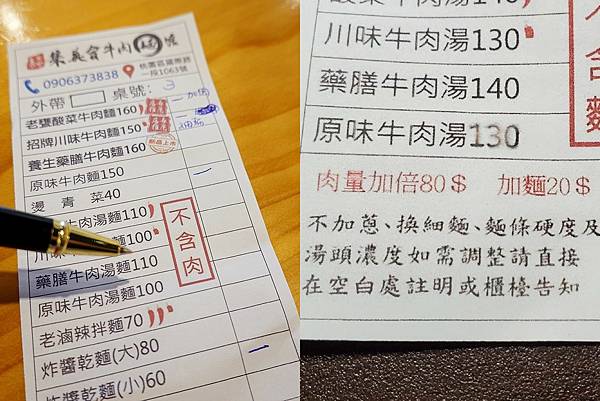 聚義會牛肉麵 號
0906373838 桃園區國際路一段1063號
外帶 桌號: 3
老甕酸菜牛肉麵160 一 加倍
招牌川味牛肉麵150
養生藥膳牛肉麵160 新品上市
原味牛肉麵150 一
燙 青 菜40
牛肉湯麵110
川味牛肉湯麵100
藥膳牛肉湯麵110
原味牛肉湯麵100
不含肉
老滷辣拌麵70
炸醬乾麵(大)80 一
炸醬乾麵(小)60
酸菜牛肉湯140
川味牛肉湯130
藥膳牛肉湯140
原味牛肉湯130
不含麵
肉量加倍80$ 加麵20$
不加蔥、換細麵、麵條硬度及
湯頭濃度如需調整請直接
在空白處註明或櫃檯告知